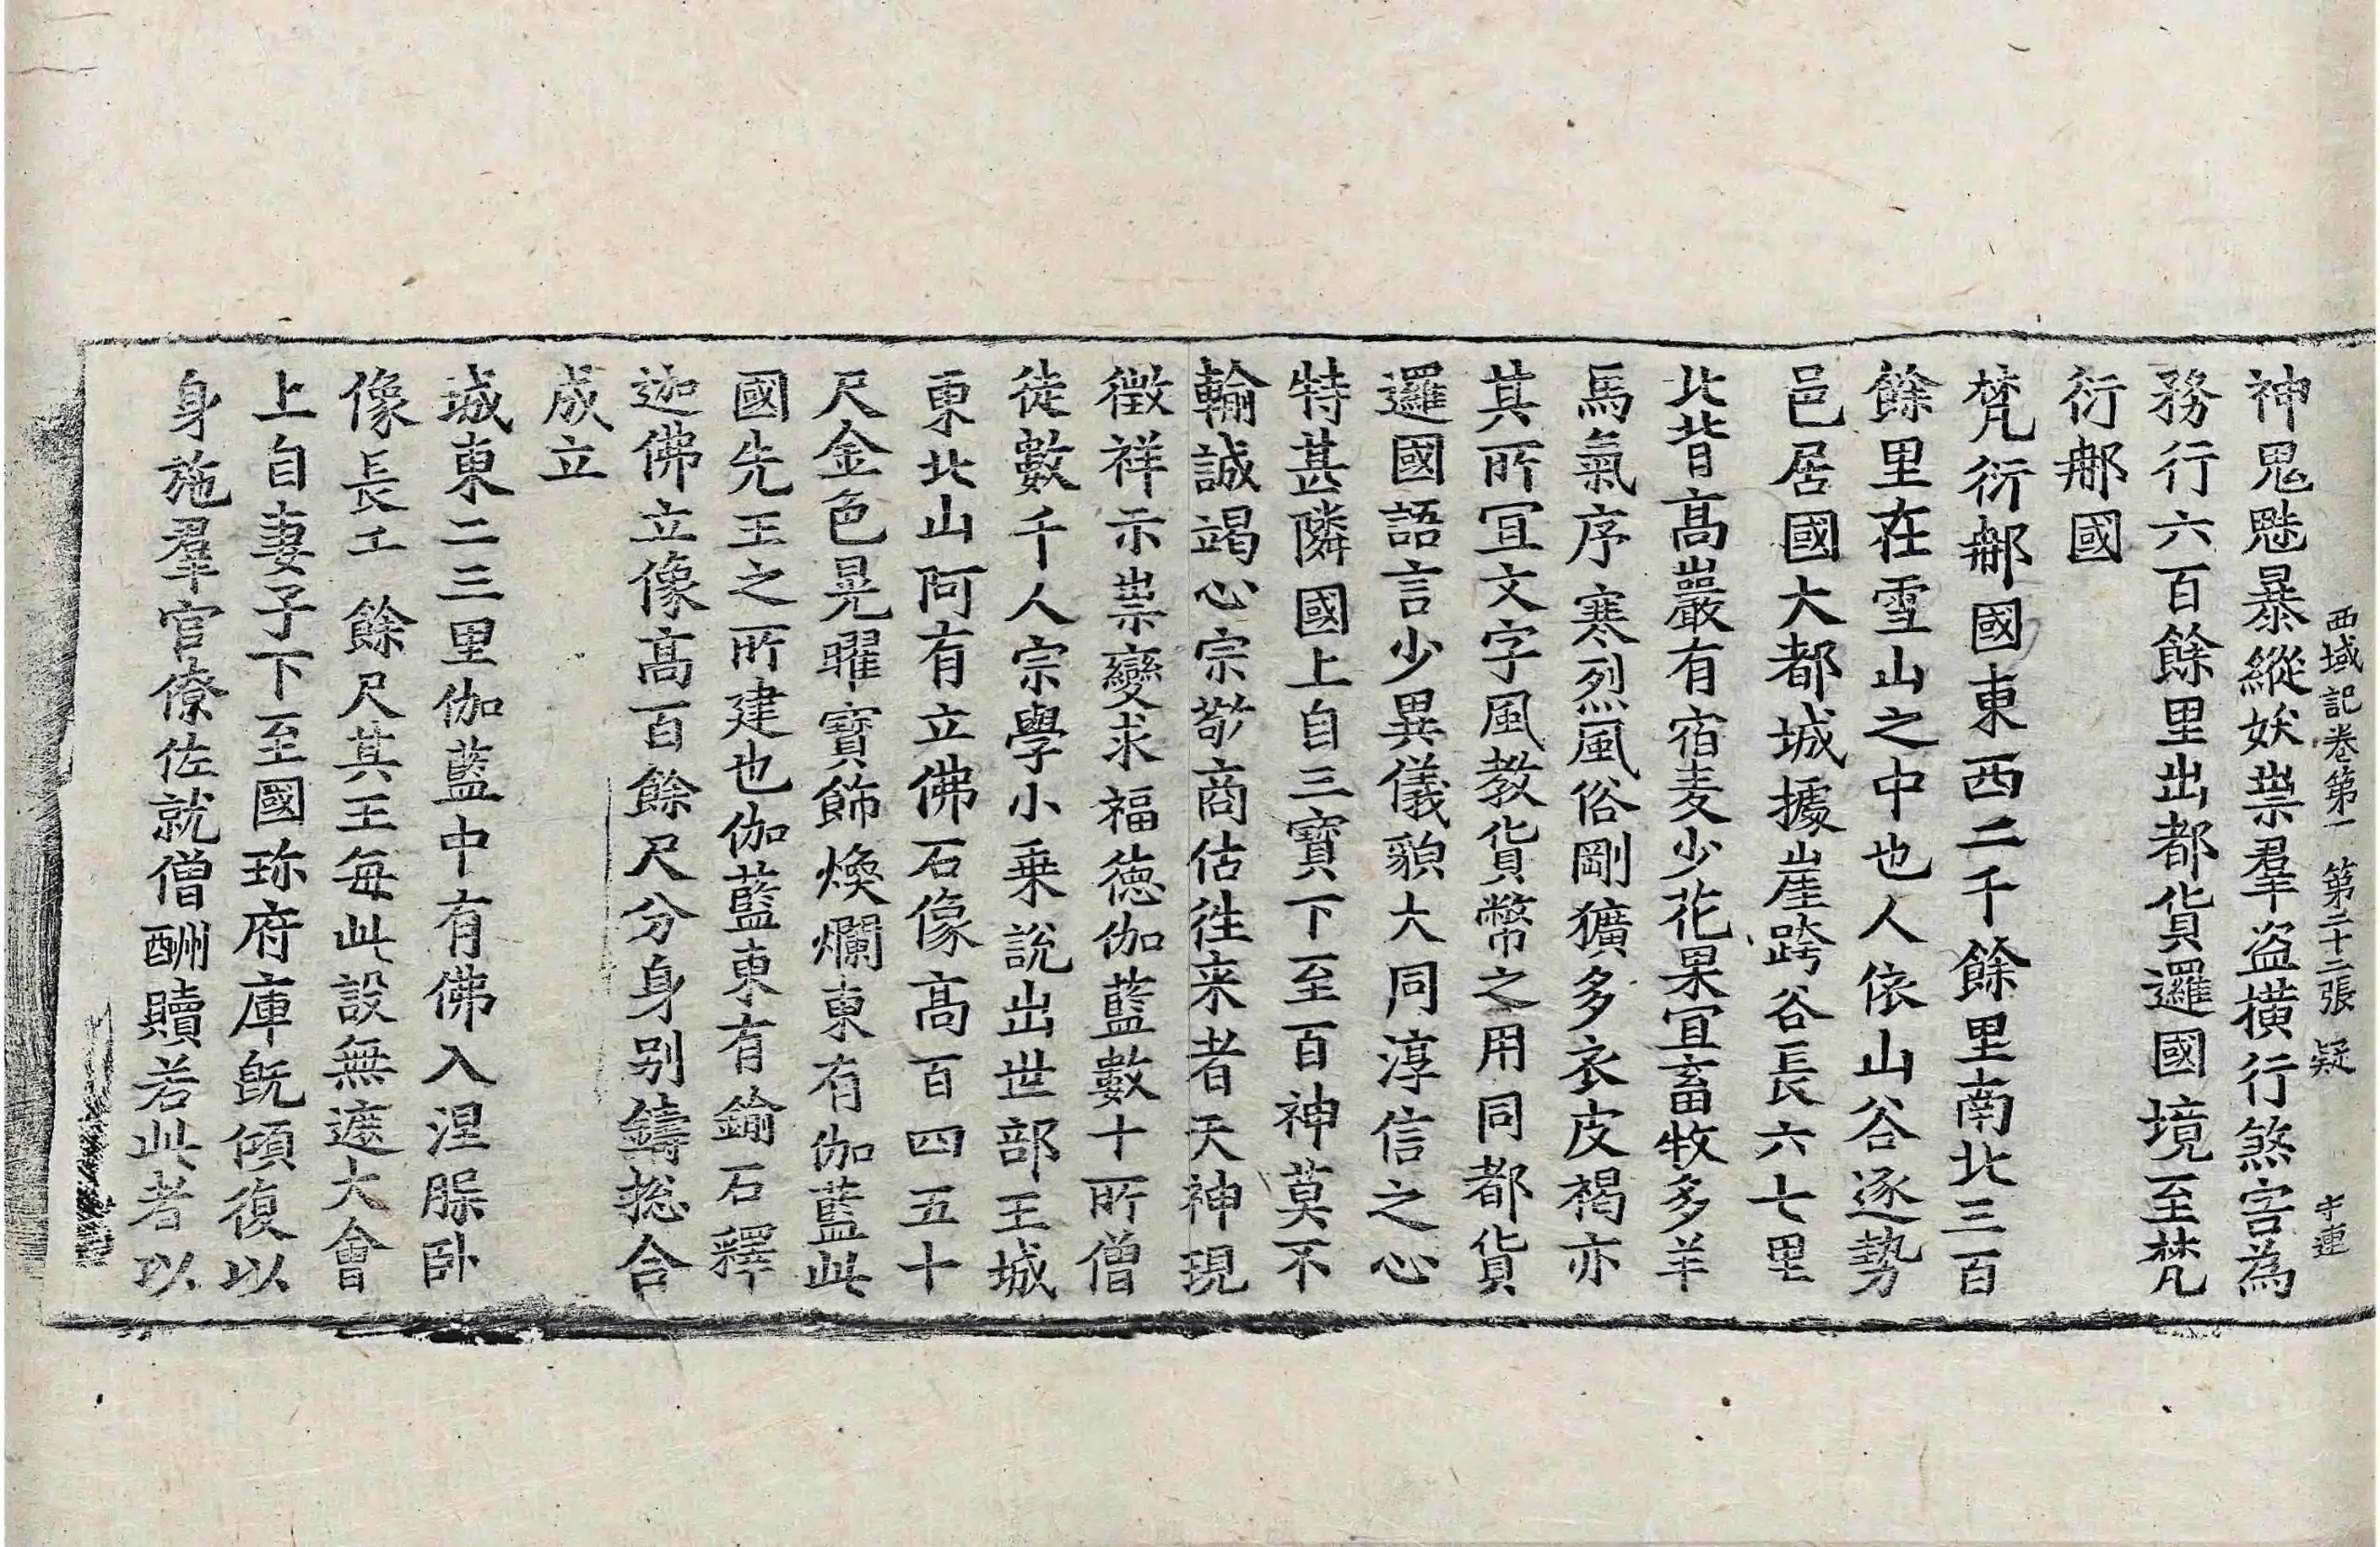 西域記卷第一 第二十二張 疑
神鬼魅暴縱妖祟羣盜橫行煞害為
務行六百餘里出都貨邏國境至梵
衍那國
梵衍那國東西二千餘里南北三百
餘里在雪山之中也人依山谷逐勢
邑居國大都城據崖跨谷長六七里
北背高巖有宿麦少花果宜畜牧多羊
馬氣序寒烈風俗剛獷多衣皮褐亦
其所冝文字風教貨幣之用同都貨
邏國語言少異儀貌大同淳信之心
特甚隣國上自三寶下至百神莫不
輸誠竭心宗敬商估往来者天神現
徵祥示祟變求福德伽藍數十所僧
徒數千人宗學小乗說出世部王城
東北山阿有立佛石像高百四五十
尺金色晃曜寶飾煥爛東有伽藍此
國先王之所建也伽藍東有鍮石釋
迦佛立像高百餘尺分身别鑄揔合
成立
城東二三里伽藍中有佛入涅槃卧
像長工餘尺其王每此設無遮大會
上自妻子下至國珎府庫旣傾復以
身施羣官僚佐就僧酬贖若此者以